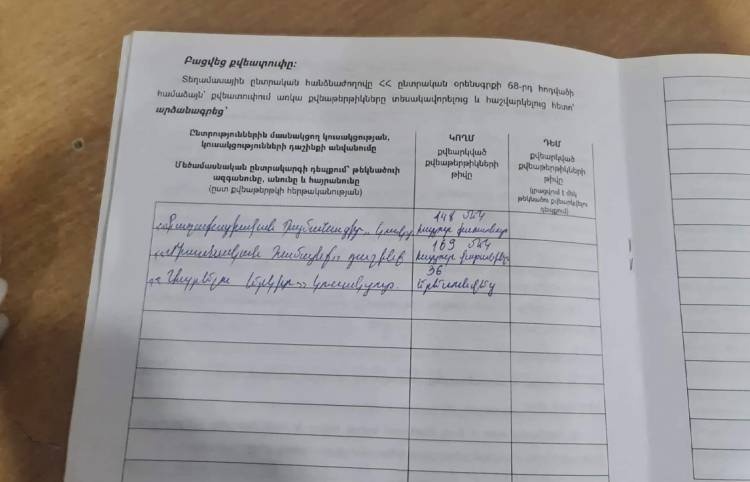 Բացվեց քվեատուփը:
Տեղամասային ընտրական հանձնաժողովը ՀՀ ընտրական օրենսգրքի 68-րդ հոդվածի
համաձայն՝ քվեատուփում առկա քվեաթերթիկները տեսակավորելուց և հաշվարկելուց հետո՝
արձանագրեց՝
Ընտրություններին մասնակցող կուսակցության,
կուսակցությունների դաշինքի անվանումը
Մեծամասնական ընտրակարգի դեպքում՝ թեկնածուի
ազգանունը, անունը և հայրանունը
(ըստ քվեաթերթկի հերթականության)
ԿՈՂՄ
քվեարկված
քվեաթերթիկների
թիվը
ԴԵՄ
քվեարկված
քվեաթերթիկների
թիվը
(լրացվում է մեկ
թեկնածու քվեարկվելու
դեպքում)
«Քաղաքացիական Պայմանագիր» կուսակց
148 մեկ
հարյուր քառասուն
դաշինք
169 մեկ
հարյուր
երկիր» կուսակցութ
36
երեսունվեց